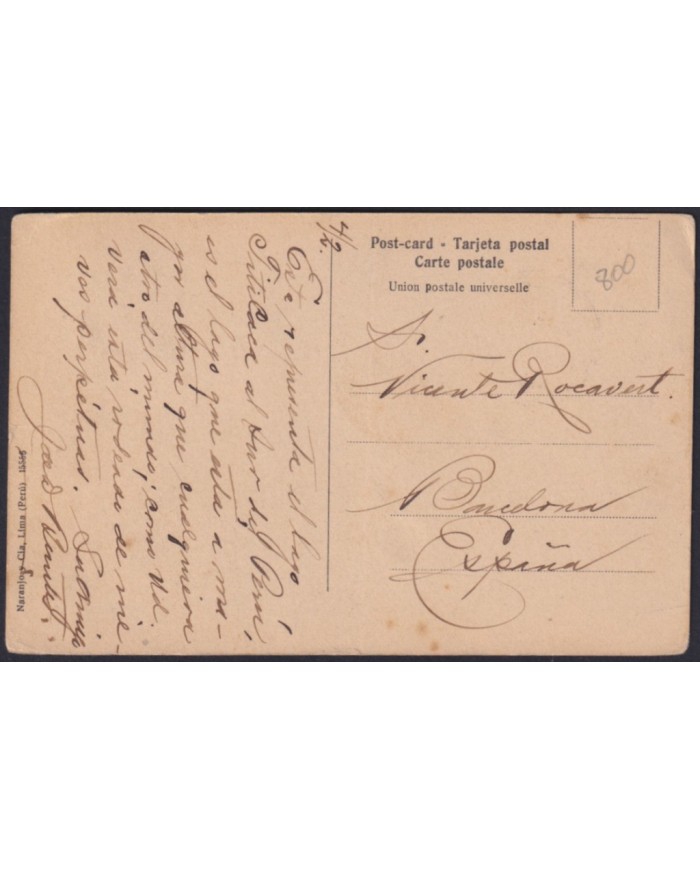 Post-card - Tarjeta postal
Carte postale
Union postale universelle
800
Sr.
Vicente Rocavert.
Barcelona
España
Este representa el lago
Titicaca al Sur del Perú,
es el lago que esta a ma-
yor altura que cualquiera
otro del mundo; como Vd.
verá esta rodeado de nie-
vos perpétuas.
José
Naranjo y Cia, Lima (Perú)